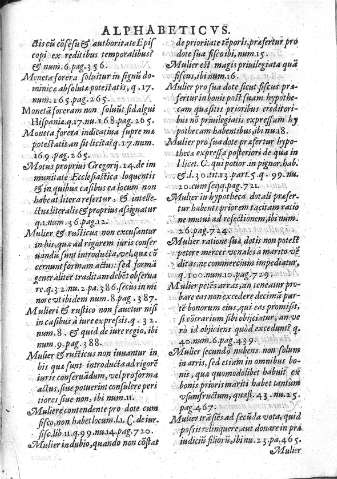 ALPHABETICVS.
tis cū cōsēsu & authoritate Epis
copi ex reditibus temporalibus?
& num. 6. pag. 356.
Moneta forera soluitur in signū do-
minica absoluta potestatis, q. 17.
num. 265. pag. 265.
Moneta foreram non soluūt, sid algui
Hispania, q. 17. nu. 168. pag. 265.
Moneta forera indicatiua supre ma
potestatis an sit licita q. 17. num.
169. pag. 265.
Motus proprius Gregorij 14. de im
munitate Ecclesiastica loquentis
& in quibus casibus ea locum non
habeat litera refertur, & intelle-
ctus literalis & proprius assignatur
q. 1. num. 36. pag. 12.
Mulier & rusticus non excusantur
in his, qua ad rigorem iuris conser
uandū sunt introducta, vel, qua cō
cernunt formam actus: sed forma
generaliter tradita m debēt obserua
re. q. 32. nu. 2. pa. 386. secus in mi
nore vt ibidem num. 8. pag. 387.
Mulieri & rustico non fauctur nisi
in casibus à iure expressis. q. 32.
num. 8. & quid de iure regio, ibi
num 9. pag. 388.
Mulier & rusticus non iuuantur in
his qua sunt introducta ad rigorē
iuris conseruādum, vel pro forma
actus, siue potuerint consulere peri
tiores siue non, ibi num. 11.
Muliere contendente pro dote cum
fisco, non habet locum l. 1. C. de iur.
fisc. lib. 11. q. 99. nu. 14 pag. 720.
Mulier in dubio, quando non cōstat
de prioritate tēporis, prafertur pro
dote sua fisco ibi, num. 15.
Mulier est magis priuilegiata quā
fiscus, ibi num. 16.
Mulier pro sua dote sicut fiscus pra-
fertur in bonis post suam hypothe-
cam quasitis prioribus creditori-
bus nō priuilegiatis expressam hy
pothecam habentibus ibi nu. 18.
Mulier pro sua dote prafertur hypo-
theca expressa posteriori de qua in
l. licet. C. qui potior. in pignor. hab.
& l. 30. tit. 13. part. 5. q. 99. nu.
20. cum seqq. pag. 721.
Mulier in hypotheca dotali prafer-
tur habenti priorem tacitam ratio
ne mutui ad refectionem, ibi num.
26. pag. 724.
Mulier ratione sua dotis non potest
petere merces venales à marito vē
ditas, nec connnecinio impedatur,
q. 100. num. 10. pag. 729.
Mulier petēs arras, an teneatur pro-
bare eas non excedere decimā par-
tē bonorum eius, qui eas promisit,
si e contrarium sibi obijciatur, an ve
rò id obijciens quòd excedunt? q.
42. num. 6. pag. 439.
Mulier secundo nubens non solum
in arris, sed etiam in omnibus bo-
nis, qua quomodolibet habuit ex
bonis prioris mariti habet tantum
vsumfructum, quast. 43. nu. 25.
pag. 467.
Mulier trāsiēs ad secūda vota, quid
possit relinquere, aut donare in pra
iudiciū filiorū, ibi nu. 23. pa. 465.
Mulier